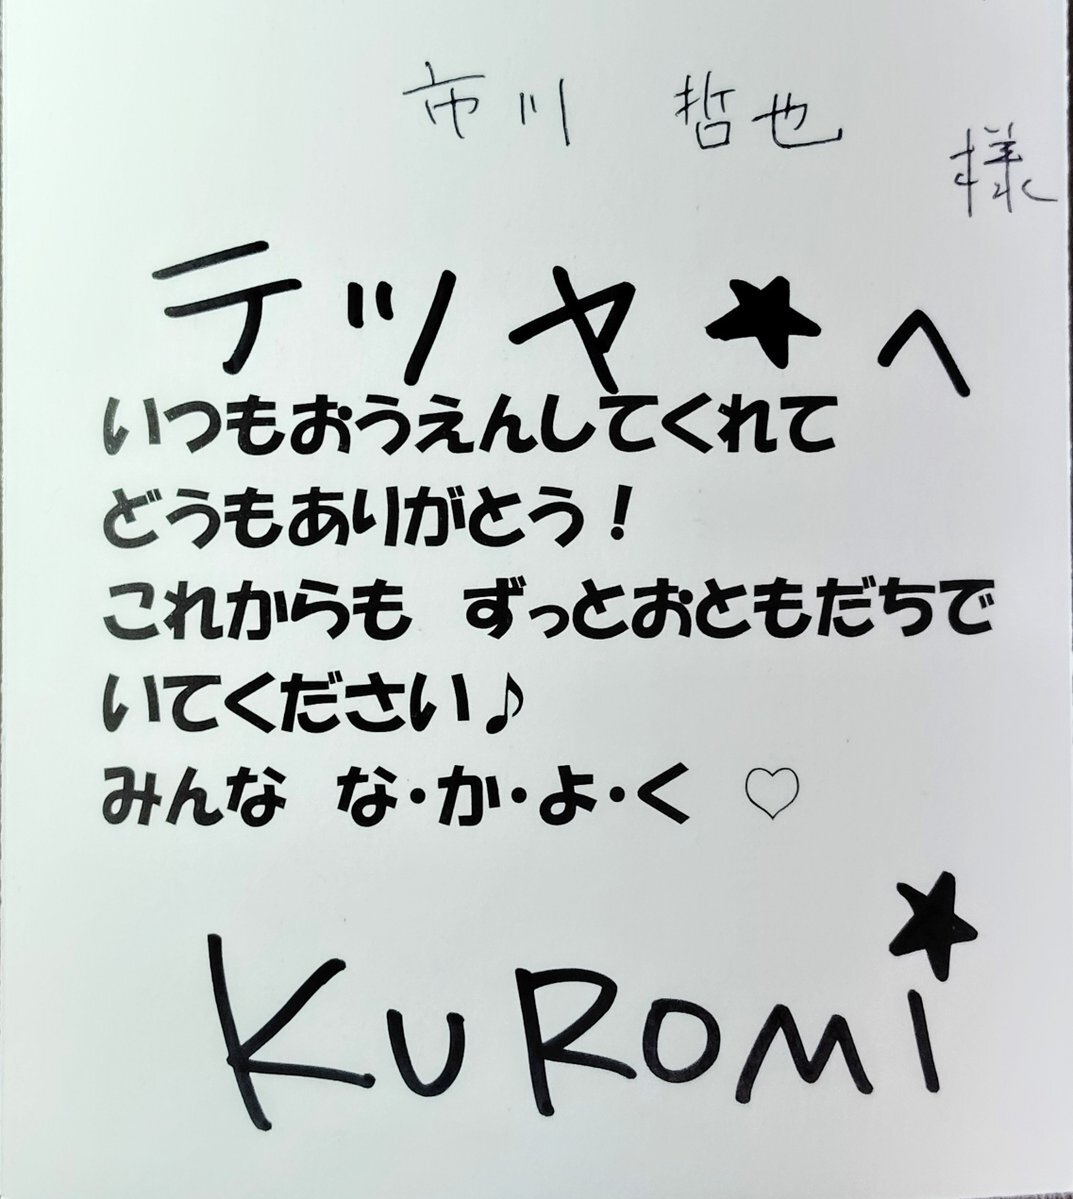 市川 哲也 様
テツヤ★へ
いつもおうえんしてくれて
どうもありがとう！
これからも ずっとおともだちで
いてください♪
みんな な・か・よ・く ♡
KUROMi